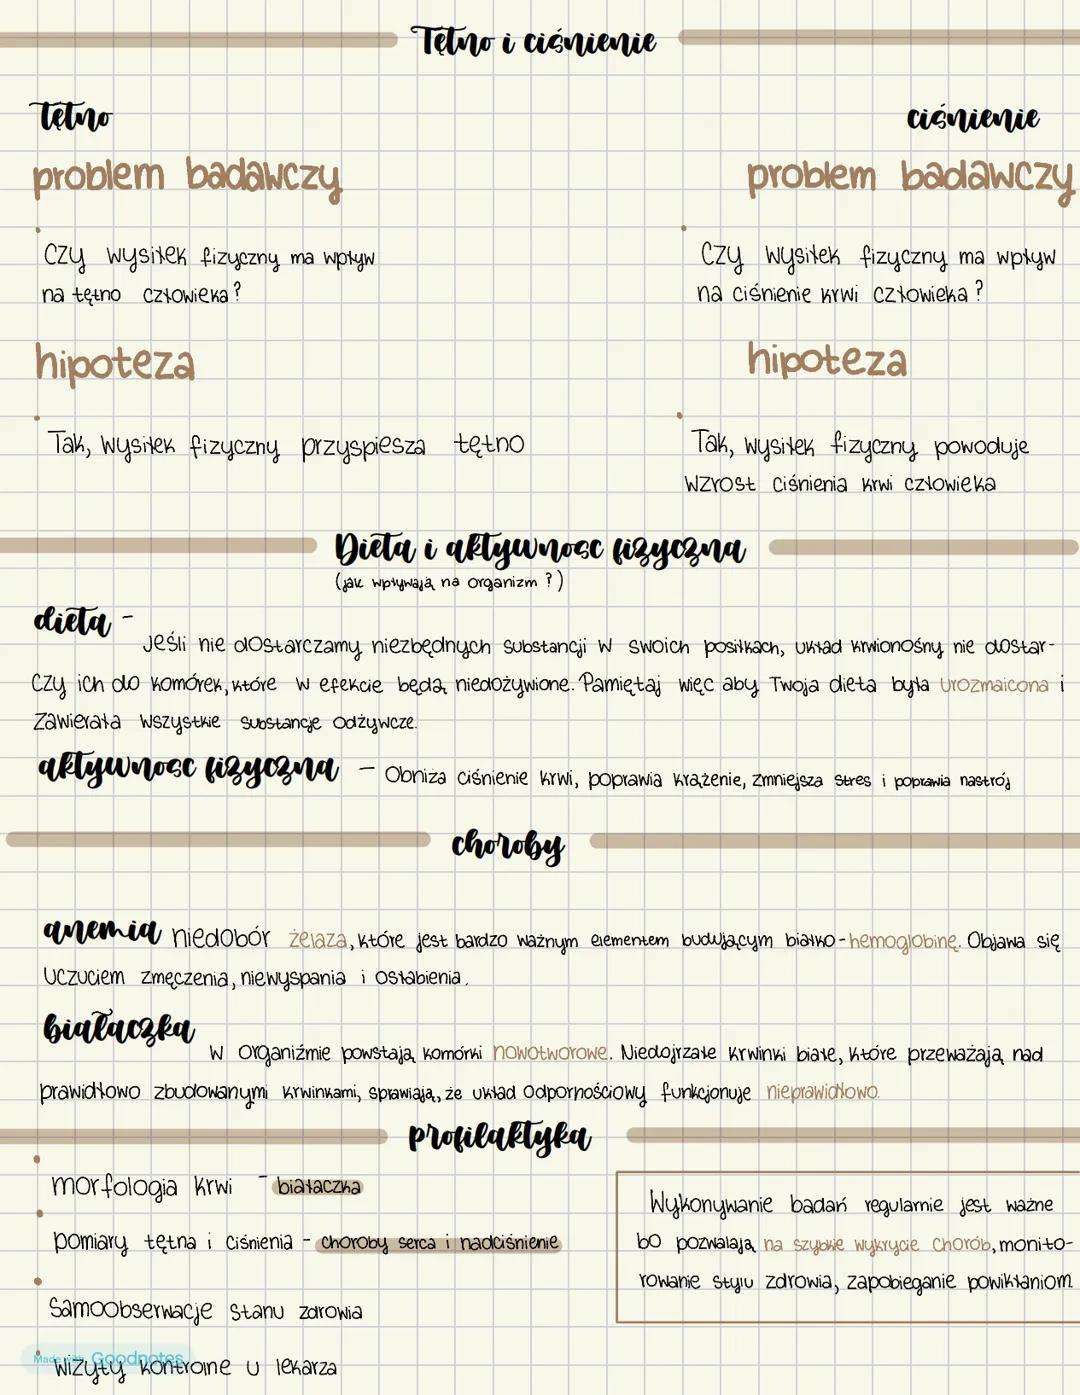 Tętno i ciśnienie
tętno
ciśnienie
problem badawczy
problem badawczy
Czy wysiłek fizyczny ma wpływ
na tętno człowieka?
Czy wysiłek fizyczny ma wpływ
na ciśnienie krwi człowieka?
hipoteza
hipoteza
Tak, wysiłek fizyczny przyspiesza tętno
Tak, wysiłek fizyczny powoduje
wzrost ciśnienia krwi człowieka
Dieta i aktywnosc fizyczna
(jak wpływają na organizm?)
dieta -
Jeśli nie dostarczamy niezbędnych substancji w swoich posiłkach, układ krwionośny nie dostar-
czy ich do komórek, które w efekcie będą niedożywione. Pamiętaj więc aby Twoja dieta była urozmaicona i
zawierała wszystkie substancje odżywcze.
aktywnosc fizyczna - Obniża ciśnienie krwi, poprawia krążenie, zmniejsza stres i poprawia nastrój
choroby
anemia niedobór żelaza, które jest bardzo ważnym elementem budującym białko - hemoglobinę. Objawa się
uczuciem zmęczenia, niewyspania i osłabienia.
białaczka
W organiźmie powstają komórki nowotworowe. Niedojrzałe krwinki białe, które przeważają nad
prawidłowo zbudowanymi krwinkami, sprawiają, że układ odpornościowy funkcjonuje nieprawidłowo.
profilaktyka
morfologia krwi - białaczka
pomiary tętna i ciśnienia - choroby serca i nadciśnienie
Samoobserwacje stanu zdrowia
wizyty kontrolne u lekarza
Wykonywanie badań regularnie jest ważne
bo pozwalają na szybkie wykrycie chorób, monito-
rowanie stylu zdrowia, zapobieganie powikłaniom
Made with Goodnotes